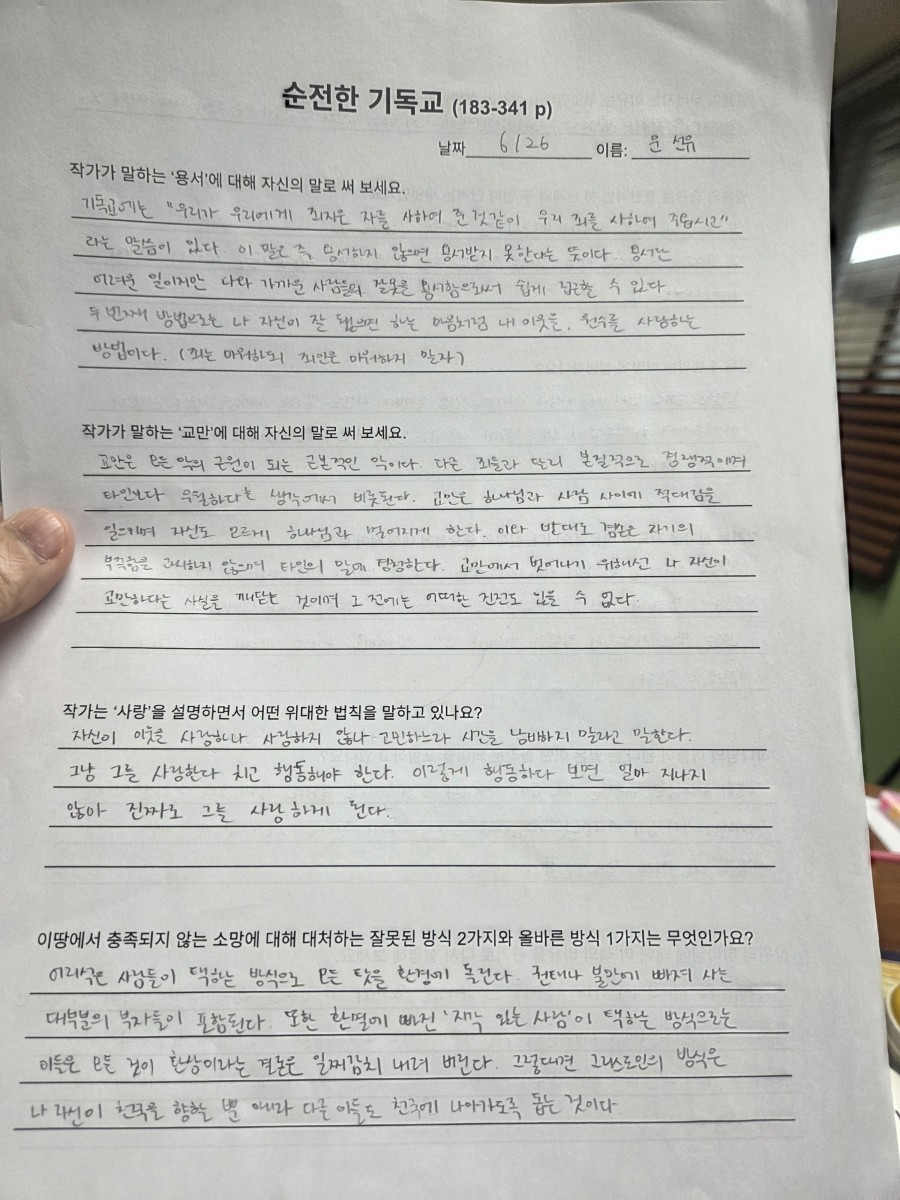 순전한 기독교 (183-341 p)
날짜 6/26 이름: 윤 선유
작가가 말하는 ‘용서’에 대해 자신의 말로 써 보세요.
기독교에는 "우리가 우리에게 죄지은 자를 사하여 준 것 같이 우리 죄를 사하여 주옵시고"
라는 말씀이 있다. 이 말은 즉 용서하지 않으면 용서받지 못한다는 뜻이다. 용서는
어려운 일이지만 나와 가까운 사람들의 잘못을 용서함으로써 쉽게 접근할 수 있다.
두 번째 방법으로는 나 자신이 잘 됐으면 하는 마음처럼 내 이웃을, 원수를 사랑하는
방법이다. (죄는 미워하되 죄인은 미워하지 말자)
작가가 말하는 ‘교만’에 대해 자신의 말로 써 보세요.
교만은 모든 악의 근원이 되는 근본적인 악이다. 다른 죄들과 달리 본질적으로 경쟁적이며
타인보다 우월하다는 생각에서 비롯된다. 교만은 하나님과 사람 사이에 적대감을
일으키며 자신도 모르게 하나님과 멀어지게 한다. 이와 반대로 겸손은 자기의
부족함을 과시하지 않으며 타인의 말에 경청한다. 교만에서 벗어나기 위해선 나 자신이
교만하다는 사실을 깨닫는 것이며 그 전에는 어떠한 진전도 있을 수 없다.
작가는 ‘사랑’을 설명하면서 어떤 위대한 법칙을 말하고 있나요?
자신이 이웃을 사랑하나 사랑하지 않나 고민하느라 시간을 낭비하지 말라고 말한다.
그냥 그를 사랑한다 치고 행동해야 한다. 이렇게 행동하다 보면 얼마 지나지
않아 진짜로 그를 사랑하게 된다.
이땅에서 충족되지 않는 소망에 대해 대처하는 잘못된 방식 2가지와 올바른 방식 1가지는 무엇인가요?
어리석은 사람들이 택하는 방식으로 모든 탓을 환경에 돌린다. 권태나 불만에 빠져 사는
대부분의 부자들이 포함된다. 또한 환멸에 빠진 '지각 있는 사람'이 택하는 방식으로는
이들은 모든 것이 환상이라는 결론을 일찌감치 내려 버린다. 그렇다면 그리스도인의 방식은
나 자신이 천국을 향할 뿐 아니라 다른 이들도 천국에 나아가도록 돕는 것이다